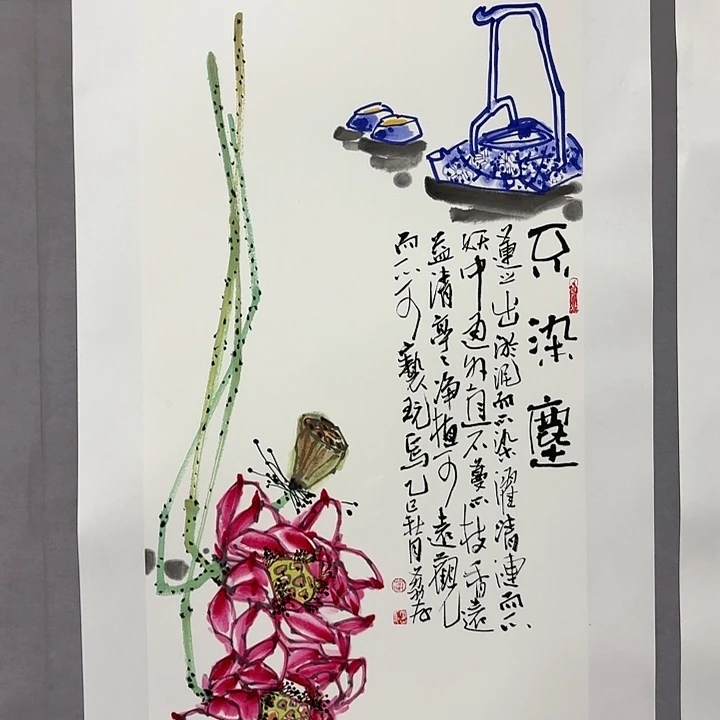 不染塵
蓮之出淤泥而不染濯清漣而不
妖中通外直不蔓不枝香遠
益清亭〻净植可遠觀
而不可褻玩焉乙巳秋月